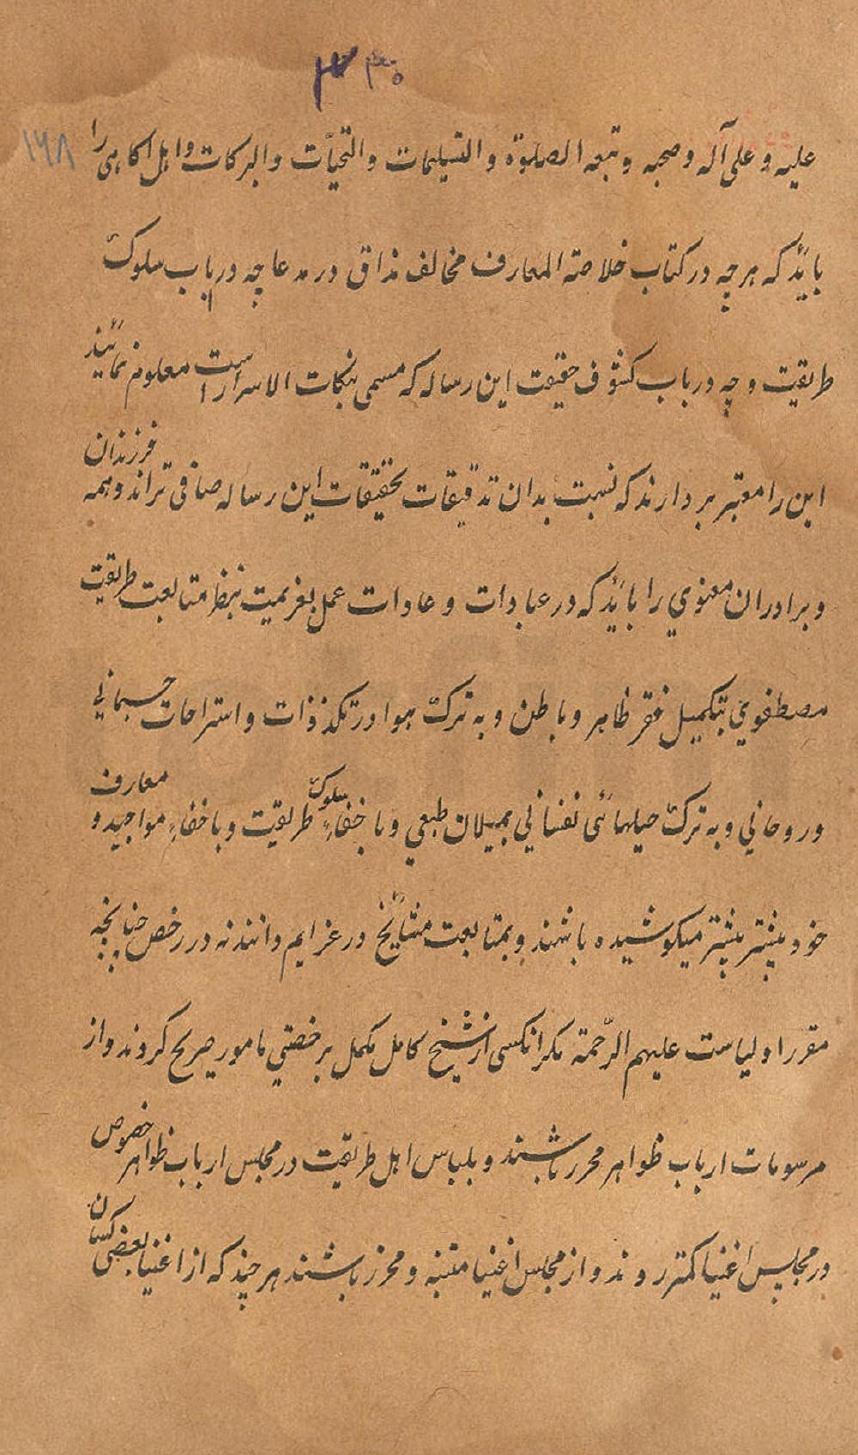 ۳۳۰
۱۶۸
علیه و علی آله و صحبه و تبعه الصلوة و التسلیمات والتحیات والبرکات واهل اکاهی را
بائد که هر چه در کتاب خلاصة المعارف مخالف مذاق در مدعا چه در باب سلوک
طریقت و چه در باب کشوف حقیقت این رساله که مسمی بنکات الاسرار است معلوم نمائند
این را معتبر بردارند که نسبت بدان تدقیقات تحقیقات این رساله صافی تراند و همه فرزندان
و برادران معنوی را بائد که در عبادات و عادات عمل بعزیمت متابعت طریقت
مصطفوی بتکمیل فقر ظاهر و باطن و به ترک هوا و تلذذات و استراحات جسمانی
و روحانی و به ترک حیلهائی نفسانی بمیلان طبعی و باخفاء سلوک طریقت و باخفاء مواجید و معارف
خود بیشتر بیشتر میکوشیده باشند و بمتابعت مشائخ در عزایم دانند نه در رخص چنانچه
مقرر اولیاست علیهم الرحمة مکر انکسی از شیخ کامل مکمل برخصتی مامور صریح کردند و از
مرسومات ارباب ظواهر محرز باشند و بلباس اهل طریقت در مجلس ارباب ظواهر خصوص
در مجلس اغنیا کمتر روند و از مجلس اغنیا متنبه و محرز باشند هر چند که از اغنیا بعضی کسان